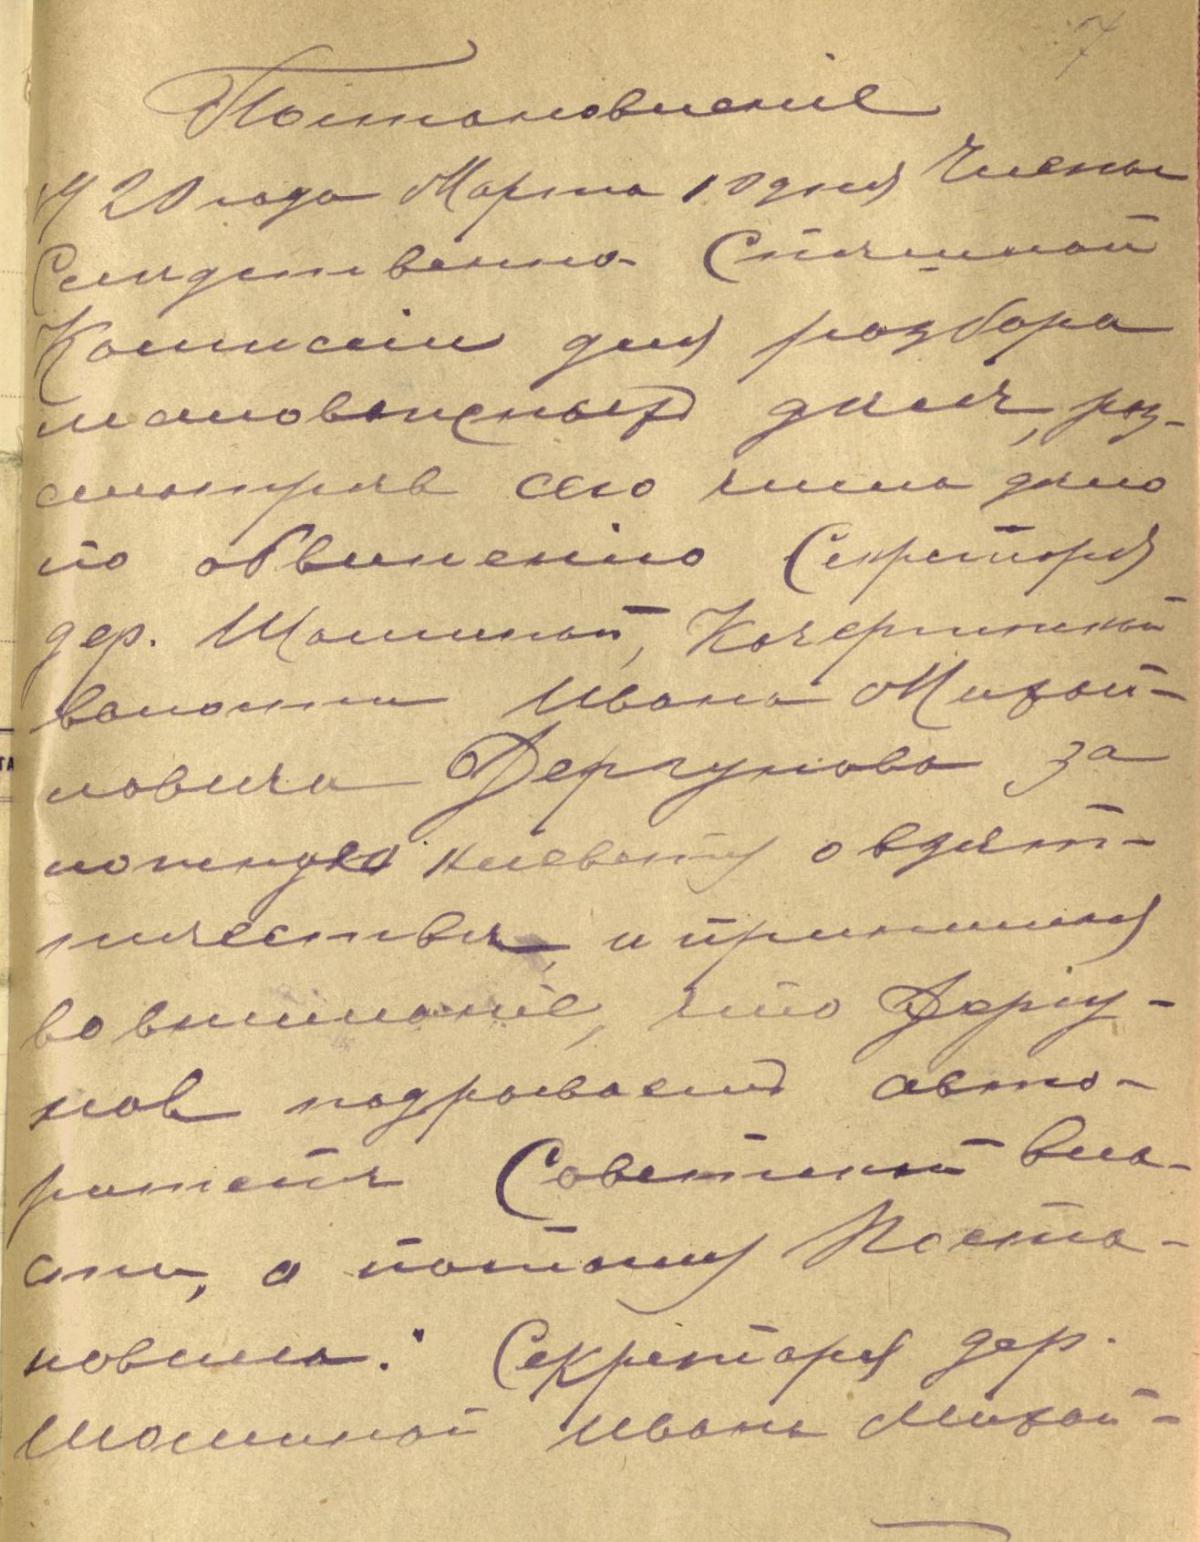 7
Постановленіе
1920 года Марта 10 дня Члены
Следственно-
Комиссіи для разбора
маловажныхъ дѣлъ, раз-
смотрѣв сего числа дѣло
по обвиненію Секретаря
дер. Шошиной, Кочергинской
волости Ивана Михай-
ловича Дергунова за
ложную клевету о взят-
ничествѣ, и принимая
во вниманіе, что Дергу-
нов подрываетъ авто-
ритетъ Советской вла-
сти, а потому Поста-
новила: Секретаря дер.
Шошиной Ивана Михай-